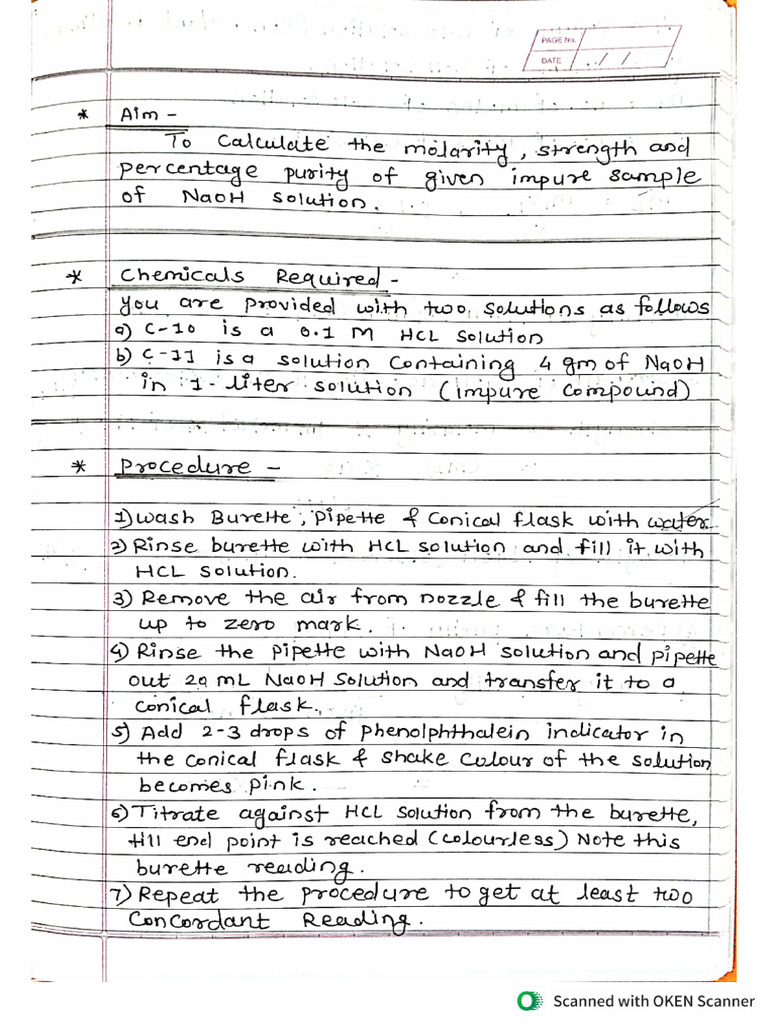 PAGE No.
DATE / /
* Aim -
To Calculate the molarity, strength and
percentage purity of given impure sample
of NaOH solution.
* Chemicals Required -
You are provided with two solutions as follows
a) C-10 is a 0.1 M HCL Solution
b) C-11 is a solution containing 4 gm of NaOH
in 1-liter solution (impure compound)
* Procedure -
1) Wash Burette, Pipette & Conical flask with water
2) Rinse burette with HCL solution and fill it with
HCL solution.
3) Remove the air from nozzle & fill the burette
up to zero mark.
4) Rinse the pipette with NaOH solution and pipette
out 20 mL NaOH Solution and transfer it to a
conical flask.
5) Add 2-3 drops of phenolphthalein indicator in
the conical flask & shake colour of the solution
becomes pink.
6) Titrate against HCL solution from the burette,
till end point is reached (colourless) Note this
burette reading.
7) Repeat the procedure to get at least two
Concordant Reading.
Scanned with OKEN Scanner